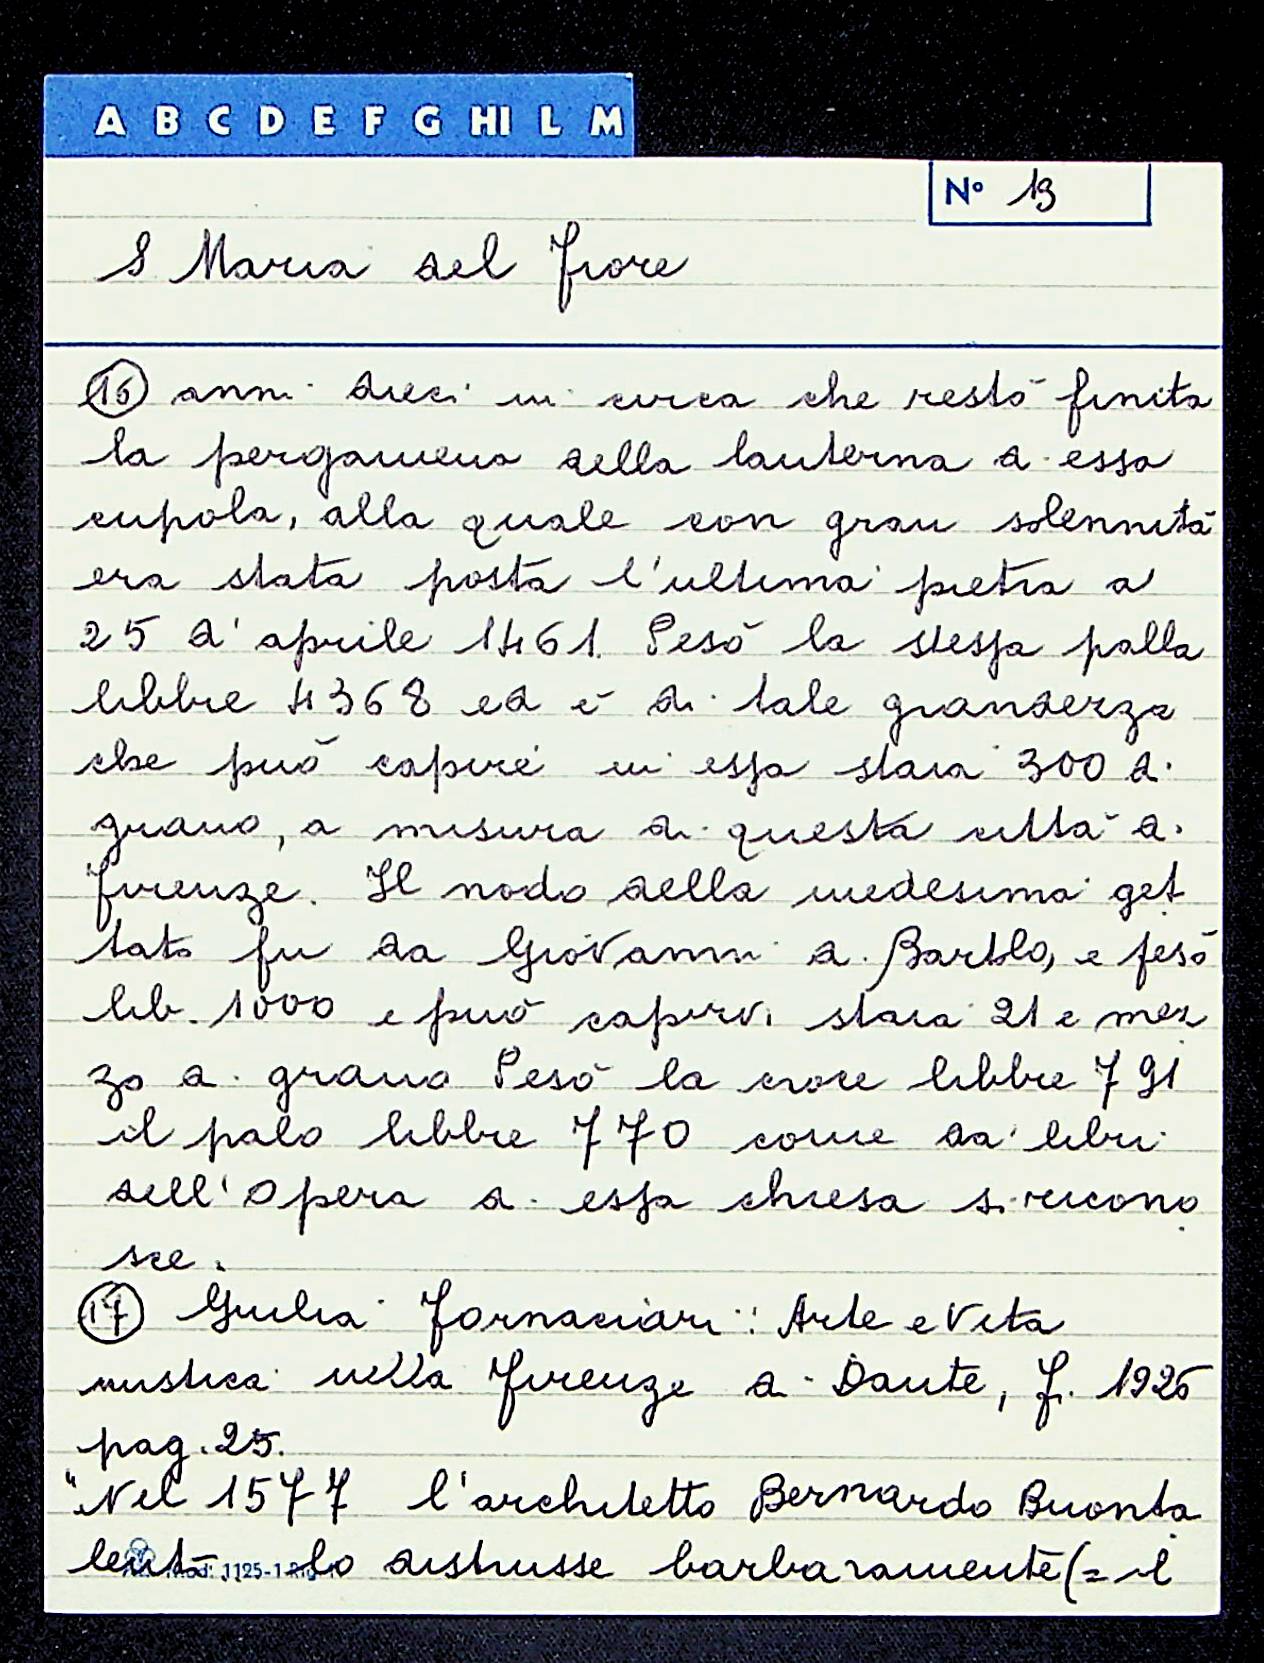 A B C D E F G HI L M
N° 19
S Maria del Fiore
(16) anni dieci in circa che restò finita
la pergamena della lanterna di essa
cupola, alla quale con gran solennità
era stata posta l'ultima pietra a'
25 d'aprile 1461. Pesò la stessa palla
libbre 4368 ed è di tale grandezza
che può capire in essa staia 300 di
grano, a misura di questa città di
Firenze. Il nodo della medesima get
tato fu da Giovanni di Bartolo, e pesò
lib. 1000 e può capirvi staia 21 e mez
zo di grano Pesò la croce libbre 791
il palo libbre 770 come da' libri
dell'Opera di essa chiesa si ricono
sce.
(17) Giulia Fornaciari: Arte e Vita
mistica nella Firenze di Dante, F. 1926
pag. 25.
"Nel 1577 l'architetto Bernardo Buonta
lenti lo distrusse barbaramente (= il
Mod. 1125-1